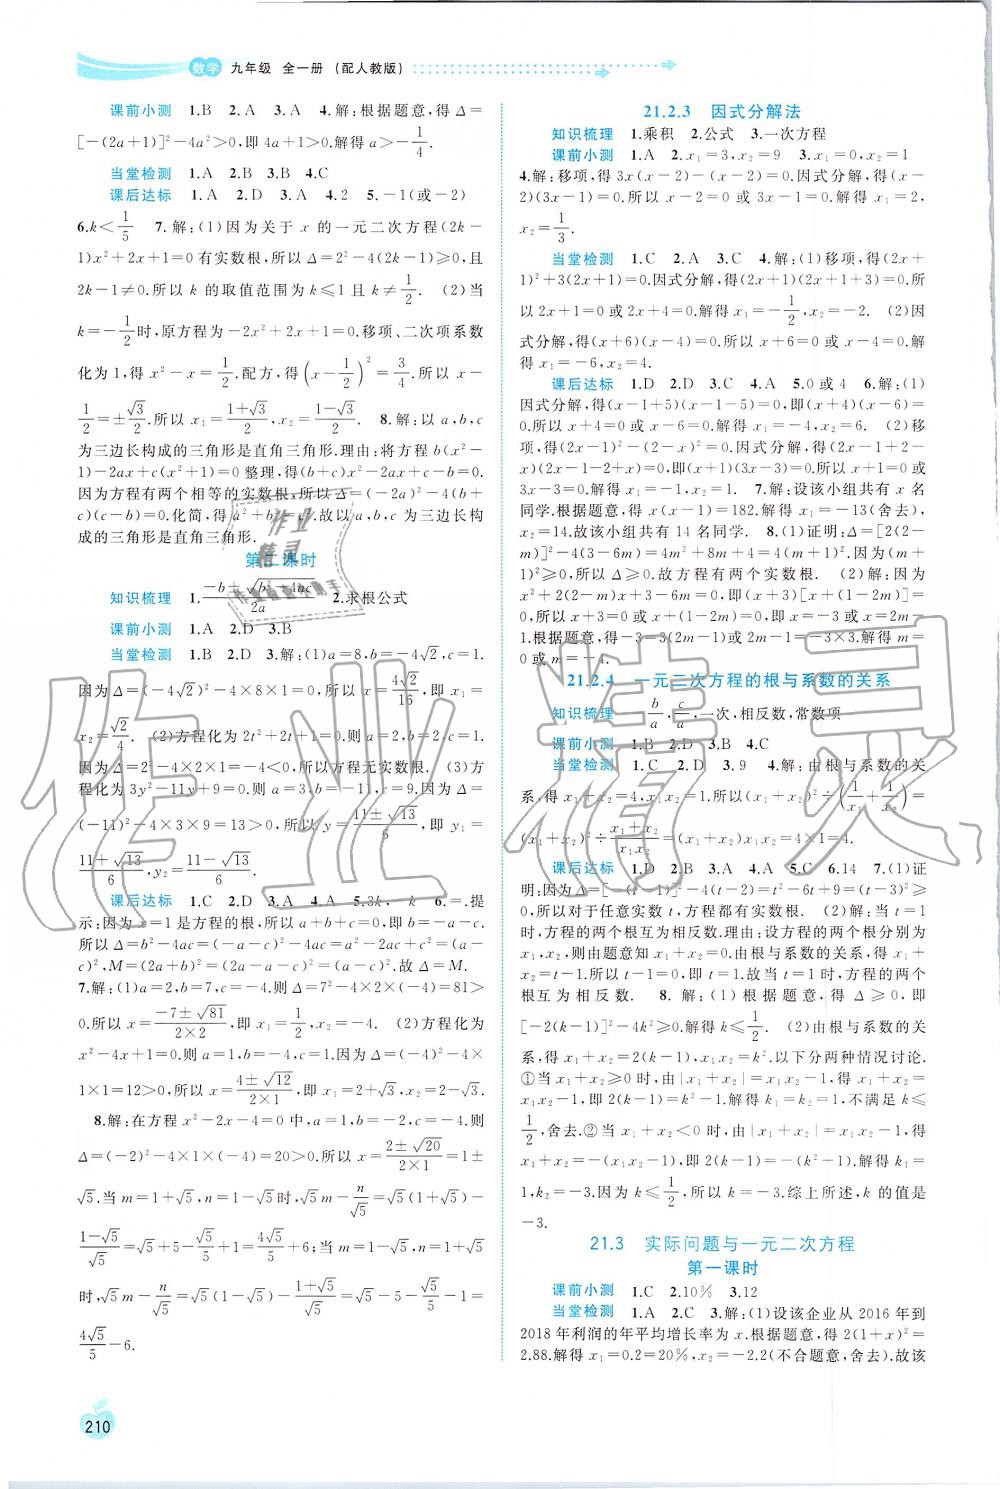 数学 九年级 全一册 (配人教版)
课前小测 1.B 2.A 3.A 4.解:根据题意,得Δ=
[-(2a+1)]²-4a²>0,即4a+1>0.解得a>-1/4.
当堂检测 1.A 2.B 3.B 4.C
课后达标 1.A 2.D 3.A 4.2 5.-1(或-2)
6.k<1/5 7.解:(1)因为关于x的一元二次方程(2k-
1)x²+2x+1=0有实数根,所以Δ=2²-4(2k-1)≥0,且
2k-1≠0.所以k的取值范围为k≤1且k≠1/2. (2)当
k=-1/2时,原方程为-2x²+2x+1=0.移项、二次项系数
化为1,得x²-x=1/2.配方,得(x-1/2)²=3/4.所以x-
1/2=±√3/2.所以x₁=(1+√3)/2,x₂=(1-√3)/2. 8.解:以a,b,c
为三边长构成的三角形是直角三角形.理由:将方程b(x²-
1)-2ax+c(x²+1)=0整理,得(b+c)x²-2ax+c-b=0.
因为方程有两个相等的实数根,所以Δ=(-2a)²-4(b+
c)(c-b)=0.化简,得a²+b²=c².故以a,b,c为三边长构
成的三角形是直角三角形.
第二课时
知识梳理 1.(-b±√(b²-4ac))/2a 2.求根公式
课前小测 1.A 2.D 3.B
当堂检测 1.B 2.D 3.解:(1)a=8,b=-4√2,c=1.
因为Δ=(-4√2)²-4×8×1=0,所以x=4√2/16,即x₁=
x₂=√2/4. (2)方程化为2t²+2t+1=0.则a=2,b=2,c=1.
因为Δ=2²-4×2×1=-4<0,所以方程无实数根. (3)方
程化为3y²-11y+9=0.则a=3,b=-11,c=9.因为Δ=
(-11)²-4×3×9=13>0,所以y=(11±√13)/6,即y₁=
(11+√13)/6,y₂=(11-√13)/6.
课后达标 1.C 2.D 3.A 4.A 5.3k,-k 6.=.提
示:因为x=1是方程的根,所以a+b+c=0,即b=-a-c.
所以Δ=b²-4ac=(-a-c)²-4ac=a²-2ac+c²=(a-
c)²,M=(2a+b)²=(2a-a-c)²=(a-c)².故Δ=M.
7.解:(1)a=2,b=7,c=-4.则Δ=7²-4×2×(-4)=81>
0.所以x=(-7±√81)/(2×2),即x₁=1/2,x₂=-4. (2)方程化为
x²-4x+1=0.则a=1,b=-4,c=1.因为Δ=(-4)²-4×
1×1=12>0,所以x=(4±√12)/(2×1),即x₁=2+√3,x₂=2-√3.
8.解:在方程x²-2x-4=0中,a=1,b=-2,c=-4,则
Δ=(-2)²-4×1×(-4)=20>0.所以x=(2±√20)/(2×1)=1±
√5.当m=1+√5,n=1-√5时,√5m-n/√5=√5(1+√5)-
(1-√5)/√5=√5+5-√5/5+1=4√5/5+6;当m=1-√5,n=1+√5
时,√5m-n/√5=√5(1-√5)-(1+√5)/√5=√5-5-√5/5-1=
4√5/5-6.
21.2.3 因式分解法
知识梳理 1.乘积 2.公式 3.一次方程
课前小测 1.A 2.x₁=3,x₂=9 3.x₁=0,x₂=1
4.解:移项,得3x(x-2)-(x-2)=0.因式分解,得(x-
2)(3x-1)=0.所以x-2=0或3x-1=0.解得x₁=2,
x₂=1/3.
当堂检测 1.C 2.A 3.C 4.解:(1)移项,得(2x+
1)²+3(2x+1)=0.因式分解,得(2x+1)(2x+1+3)=0.所
以2x+1=0或2x+4=0.解得x₁=-1/2,x₂=-2. (2)因
式分解,得(x+6)(x-4)=0.所以x+6=0或x-4=0.解
得x₁=-6,x₂=4.
课后达标 1.D 2.D 3.C 4.A 5.0或4 6.解:(1)
因式分解,得(x-1+5)(x-1-5)=0,即(x+4)(x-6)=
0.所以x+4=0或x-6=0.解得x₁=-4,x₂=6. (2)移
项,得(2x-1)²-(2-x)²=0.因式分解,得(2x-1+2-
x)(2x-1-2+x)=0,即(x+1)(3x-3)=0.所以x+1=0
或3x-3=0.解得x₁=-1,x₂=1. 7.解:设该小组共有x名
同学.根据题意,得x(x-1)=182.解得x₁=-13(舍去),
x₂=14.故该小组共有14名同学. 8.(1)证明:Δ=[2(2-
m)]²-4(3-6m)=4m²+8m+4=4(m+1)².因为(m+
1)²≥0,所以Δ≥0.故方程有两个实数根. (2)解:因为
x²+2(2-m)x+3-6m=0,即(x+3)[x+(1-2m)]=
0,所以x+3=0或x+(1-2m)=0,即x=-3或x=2m-
1.根据题意,得-3-3(2m-1)=0或2m-1=-3×3.解得m=
0或m=-4.
21.2.4 一元二次方程的根与系数的关系
知识梳理 -b/a,c/a,一次,相反数,常数项
课前小测 1.B 2.D 3.B 4.C
当堂检测 1.C 2.D 3.9 4.解:由根与系数的关
系,得x₁+x₂=4,x₁x₂=1.所以(x₁+x₂)²÷(1/x₁+1/x₂)=
(x₁+x₂)²÷(x₁+x₂)/(x₁x₂)=(x₁+x₂)x₁x₂=4×1=4.
课后达标 1.D 2.B 3.A 4.A 5.C 6.14 7.(1)证
明:Δ=[-(t-1)]²-4(t-2)=t²-6t+9=(t-3)²≥
0,所以对于任意实数t,方程都有实数根. (2)解:当t=1
时,方程的两个根互为相反数.理由:设方程的两个根分别为
x₁,x₂,则由题意知x₁+x₂=0.由根与系数的关系,得x₁+
x₂=t-1.所以t-1=0,即t=1.故当t=1时,方程的两个
根互为相反数. 8.解:(1)根据题意,得Δ≥0,即
[-2(k-1)]²-4k²≥0.解得k≤1/2. (2)由根与系数的关
系,得x₁+x₂=2(k-1),x₁x₂=k².以下分两种情况讨论.
①当x₁+x₂≥0时,由|x₁+x₂|=x₁x₂-1,得x₁+x₂=
x₁x₂-1,即2(k-1)=k²-1.解得k=1,不满足k≤
1/2,舍去.②当x₁+x₂<0时,由|x₁+x₂|=x₁x₂-1,得
x₁+x₂=-(x₁x₂-1),即2(k-1)=-(k²-1).解得k₁=
1,k₂=-3.因为k≤1/2,所以k=-3.综上所述,k的值是
-3.
21.3 实际问题与一元二次方程
第一课时
课前小测 1.C 2.10% 3.12
当堂检测 1.A 2.C 3.解:(1)设该企业从2016年到
2018年利润的年平均增长率为x.根据题意,得2(1+x)²=
2.88.解得x₁=0.2=20%,x₂=-2.2(不合题意,舍去).故该
210
作业精灵